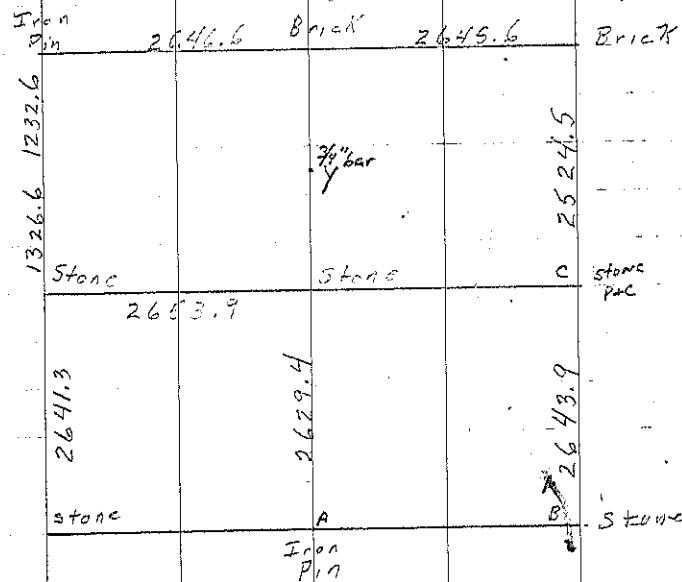 Iron
Pin
2646.6
Brick
2645.6
Brick
1232.6
1326.6
3/4" bar
Y
2524.5
Stone
2653.9
Stone
C
Stone
P&C
2641.3
2629.4
2643.9
stone
A
B
Stone
Iron
Pin